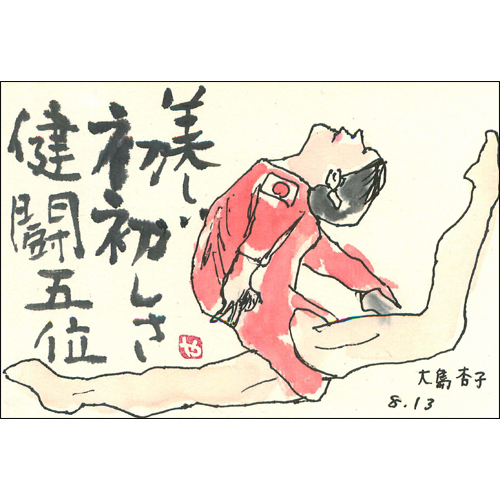 美しい
初初しさ
健闘五位
や
大島杏子
8.13